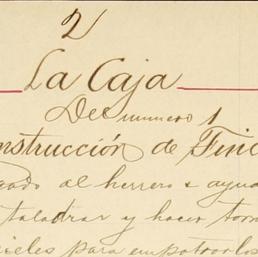 2
La Caja
Del numero 1
nstrucción de Finc
gado al herrero & ayud
taladrar y hacer torn
rieles para empotrarlos